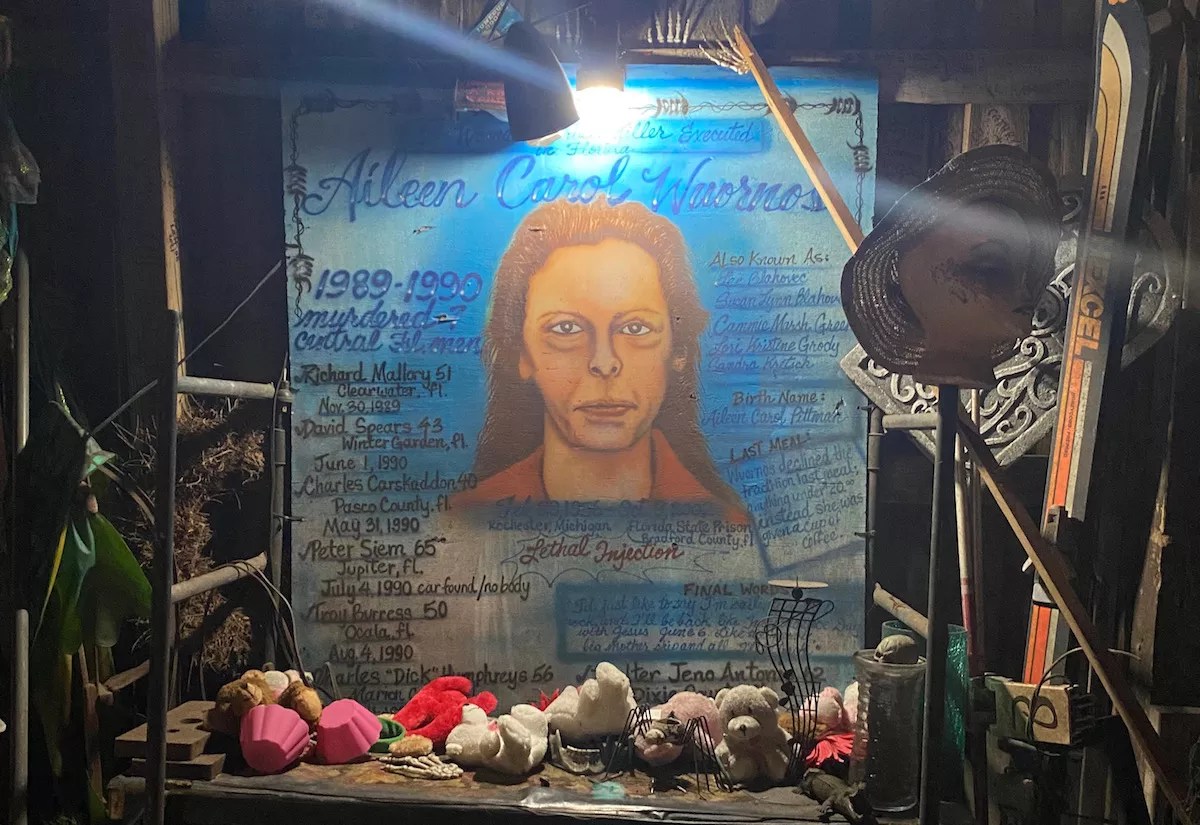 Killer Executed
in Florida
Aileen Carol Wuornos
1989-1990
murdered
central Fl. men
Richard Mallory 51
Clearwater, Fl.
Nov. 30, 1989
David Spears 43
Winter Garden, Fl.
June 1, 1990
Charles Carskaddon 40
Pasco County, Fl.
May 31, 1990
Peter Siem 65
Jupiter, Fl.
July 4, 1990 car found/no body
Troy Burress 50
Ocala, Fl.
Aug 4, 1990
Charles "Dick" Humphreys 56
Marion
Also Known As:
Susan Lynn Blahov
Cammie Marsh Green
Lori Kristine Grody
Sandra Kretsch
Birth Name:
Aileen Carol Pittman
LAST MEAL:
Wuornos declined the
tradition last meal,
anything under 20
instead she was
given a cup of
coffee.
Rochester, Michigan
Florida State Prison
Bradford County, Fl
Lethal Injection
FINAL WORDS
I'd just like to say I'm sail
rock, and I'll be back like
with Jesus June 6. Like
big Mother ship and all
Walter Jeno Antonio 2
Dixie
EXCEL